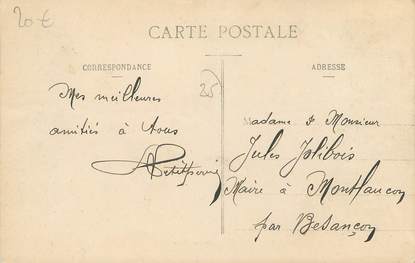 20 €
CARTE POSTALE
CORRESPONDANCE
ADRESSE
25
Mes meilleures
amitiés à tous
Madame & Monsieur
Jules Jolibois
Maire à Montfaucon
par Besançon